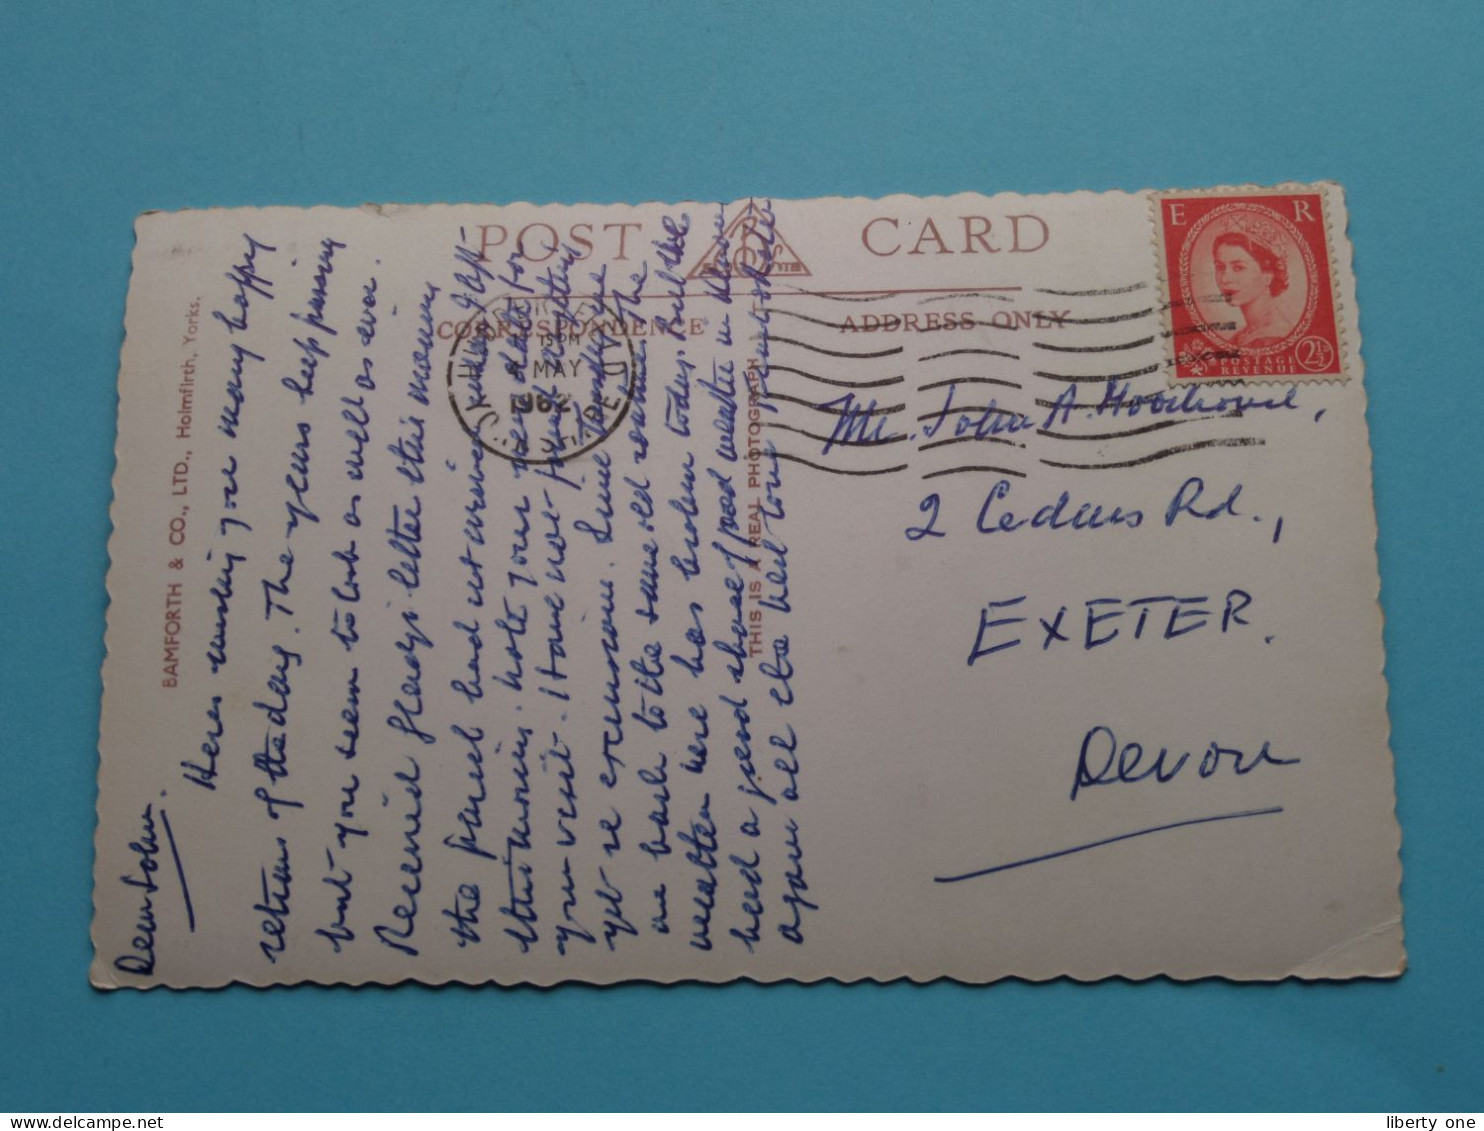 POST CARD
CORRESPONDENCE
ADDRESS ONLY
BAMFORTH & CO., LTD., Holmfirth, Yorks.
THIS IS A REAL PHOTOGRAPH
E R
POSTAGE
REVENUE
2½
15PM
MAY
1962
Mr. John A. Woodhouse,
2 Cedars Rd.,
EXETER.
Devon
Dear John.
Heres wishing you many happy
returns of the day. The years keep passing
but you seem to look as well as ever.
Received Gladys letter this morning
the parcel had not arrived when I left
this morning. note your new date for
your visit. I have not
yet re excursions.
are back to the same old routine. The
weather here has broken today. But we
had a good share of good weather in
again all the best to
liberty one